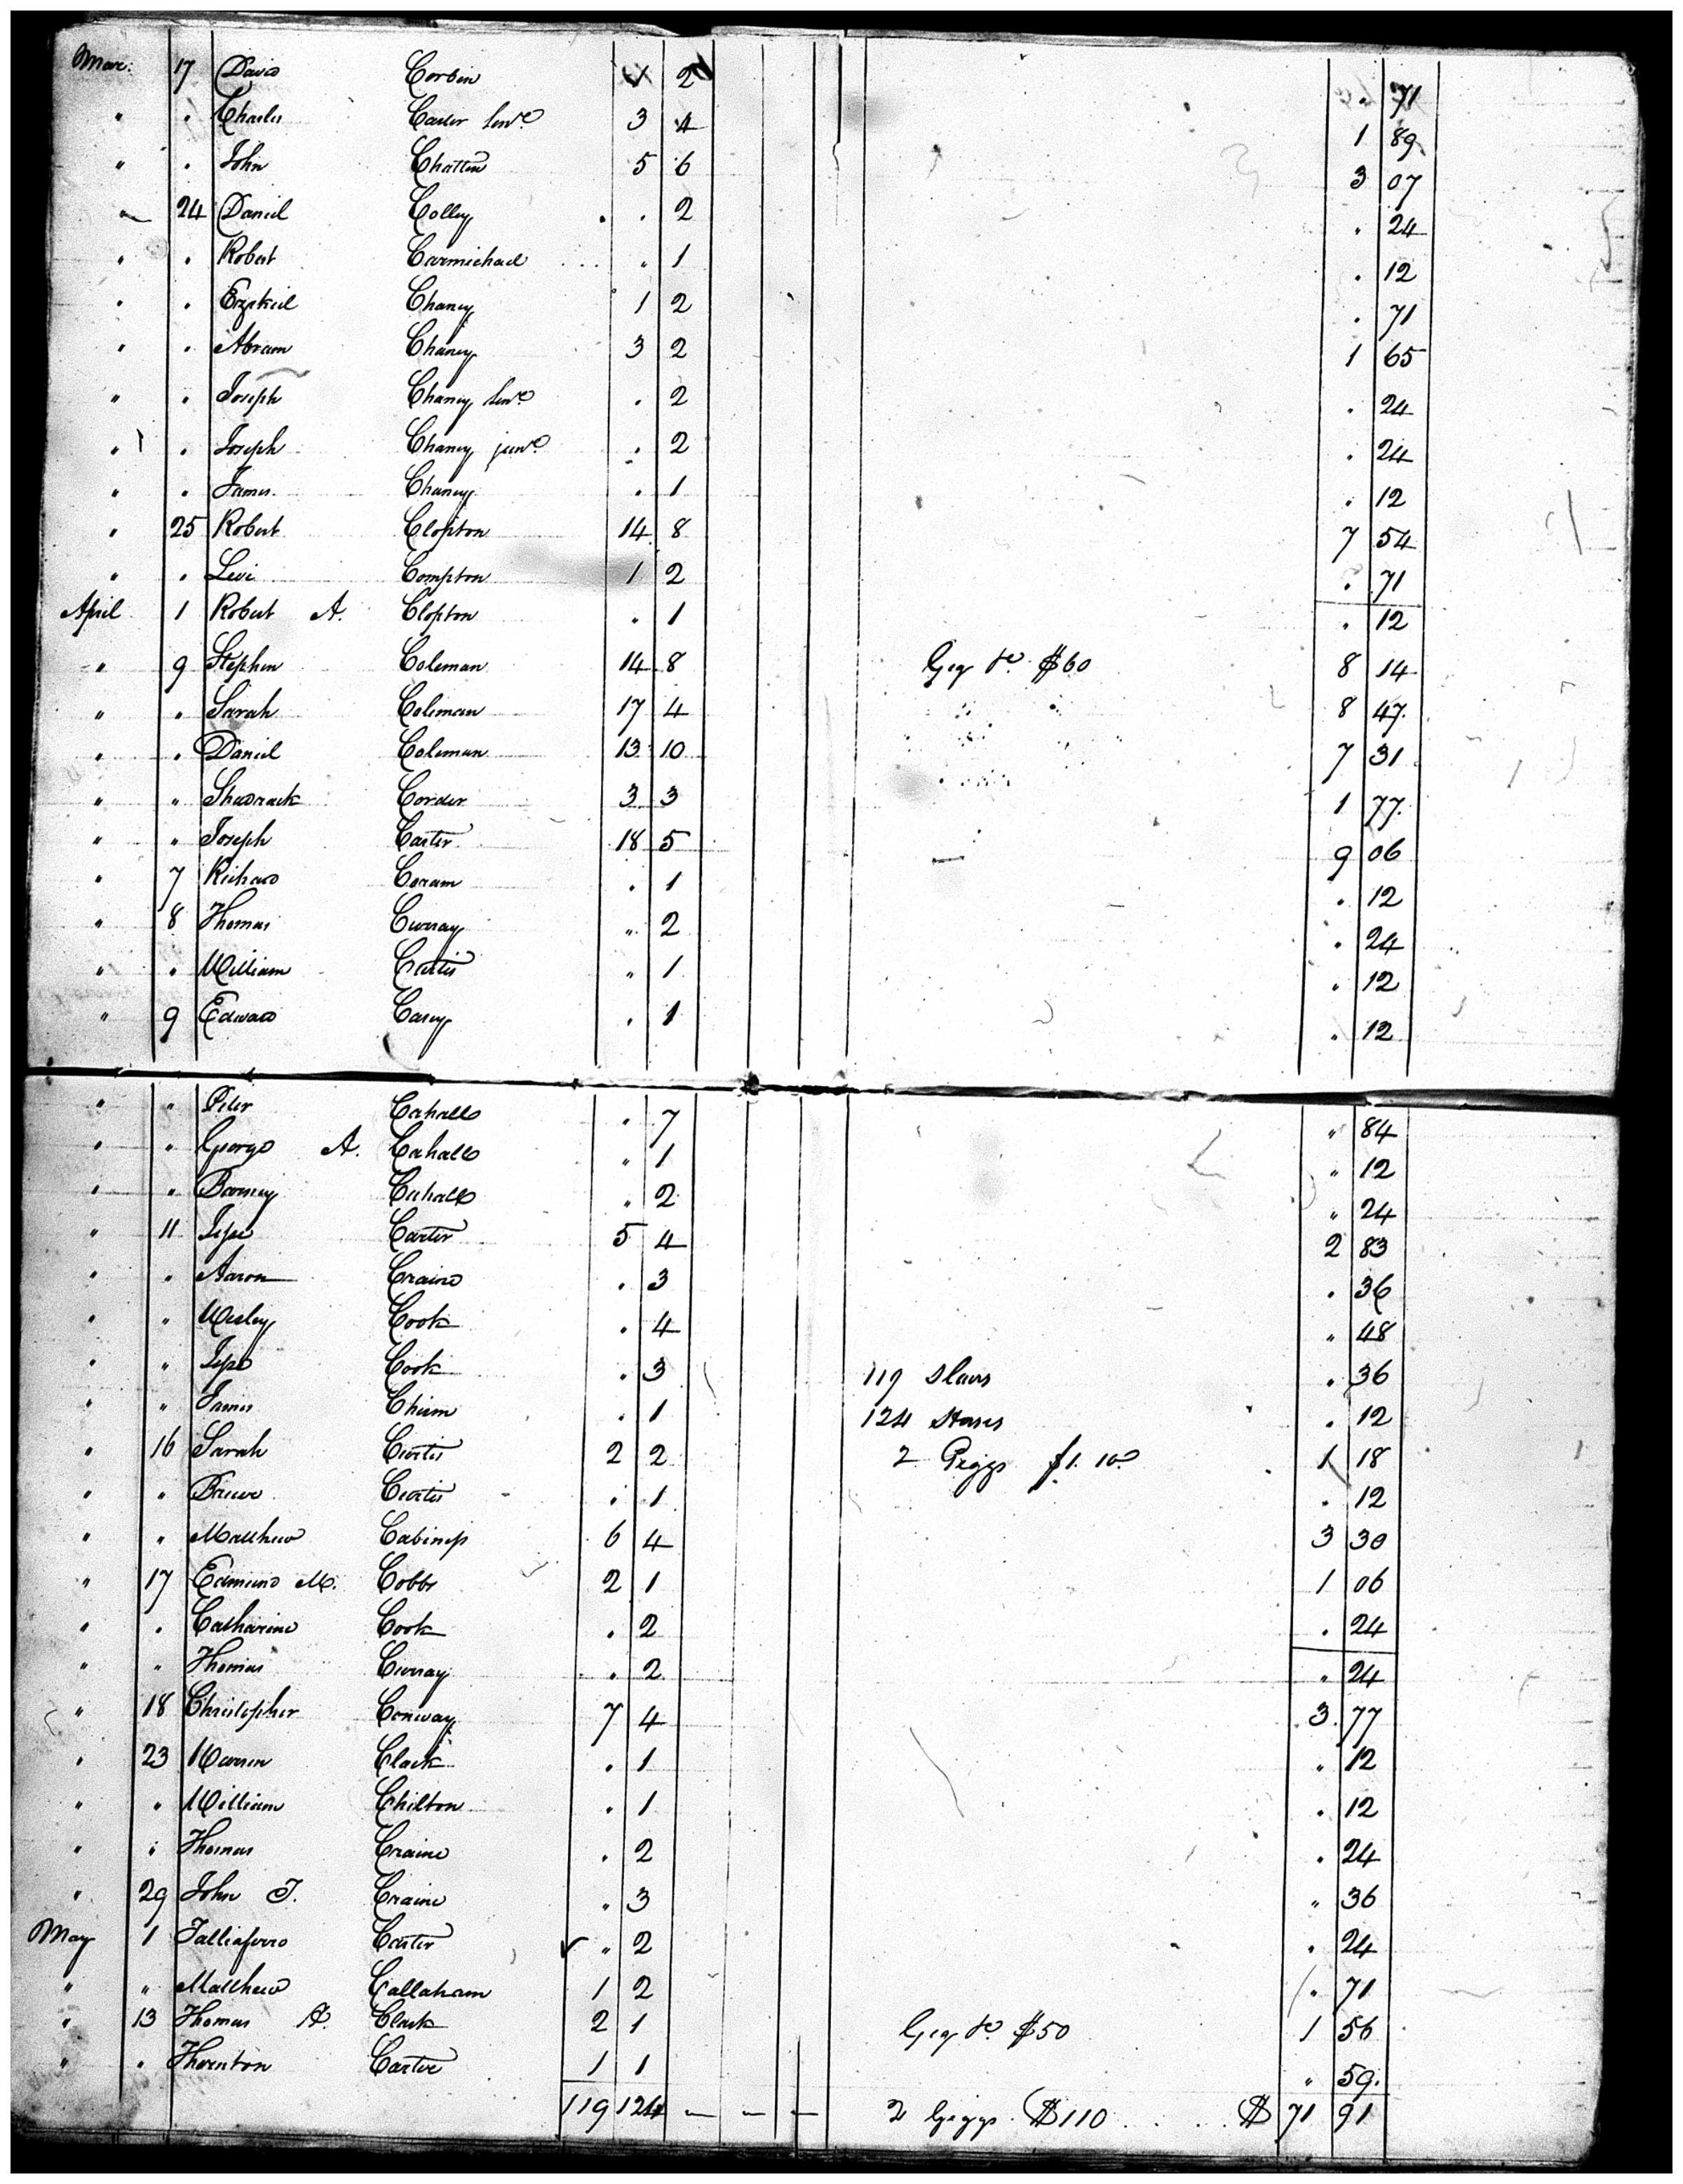 Mar: 17 David Corbin 1 2 . 71
" . Charles Carter Senr. 3 4 1 89
" . John Chattin 5 6 3 07
" 24 Daniel Colley . 2 . 24
" . Robert Carmichael " 1 . 12
" . Ezekiel Chaney 1 2 . 71
" . Abram Chaney 3 2 1 65
" . Joseph Chaney Senr. . 2 . 24
" . Joseph Chaney junr. . 2 . 24
" . James Chaney . 1 . 12
" 25 Robert Clopton 14 8 7 54
" . Levi Compton 1 2 . 71
April 1 Robert A. Clopton " 1 . 12
" 9 Stephen Coleman 14 8 Gig &c. $60 8 14
" " Sarah Coleman 17 4 8 47
" " Daniel Coleman 13 10 7 31
" " Shadrack Corder 3 3 1 77
" " Joseph Carter 18 5 9 06
" 7 Richard Coram . 1 . 12
" 8 Thomas Curray " 2 . 24
" . William Curtis " 1 " 12
" 9 Edward Casey . 1 " 12
" " Peter Cahall . 7 " 84
" " George A. Cahall " 1 " 12
" " Barney Cahall " 2 " 24
" 11 Jesse Carter 5 4 2 83
" . Aaron Craine . 3 . 36
" " Wesley Cook . 4 " 48
" " Jesse Cook . 3 119 Slaves . 36
" " James Chism . 1 124 Horses . 12
" 16 Sarah Curtis 2 2 2 Giggs $1.10 1 18
" " Curtis . 1 . 12
" " Matthew Cabiness 6 4 3 30
" 17 Edmund M. Cobbs 2 1 1 06
" . Catharine Cook . 2 . 24
" " Thomas Curray . 2 " 24
" 18 Christopher Conway 7 4 3 77
" 23 Warren Clark . 1 " 12
" " William Chilton . 1 . 12
" " Thomas Craine . 2 . 24
" 29 John T. Craine " 3 " 36
May 1 Talliaferro Carter " 2 . 24
" " Matthew Callaham 1 2 . 71
" 13 Thomas A. Clark 2 1 Gig &c. $50 1 56
" " Thornton Carter 1 1 " 59
119 124 — — — 2 Giggs. $110 . . . . $ 71 91